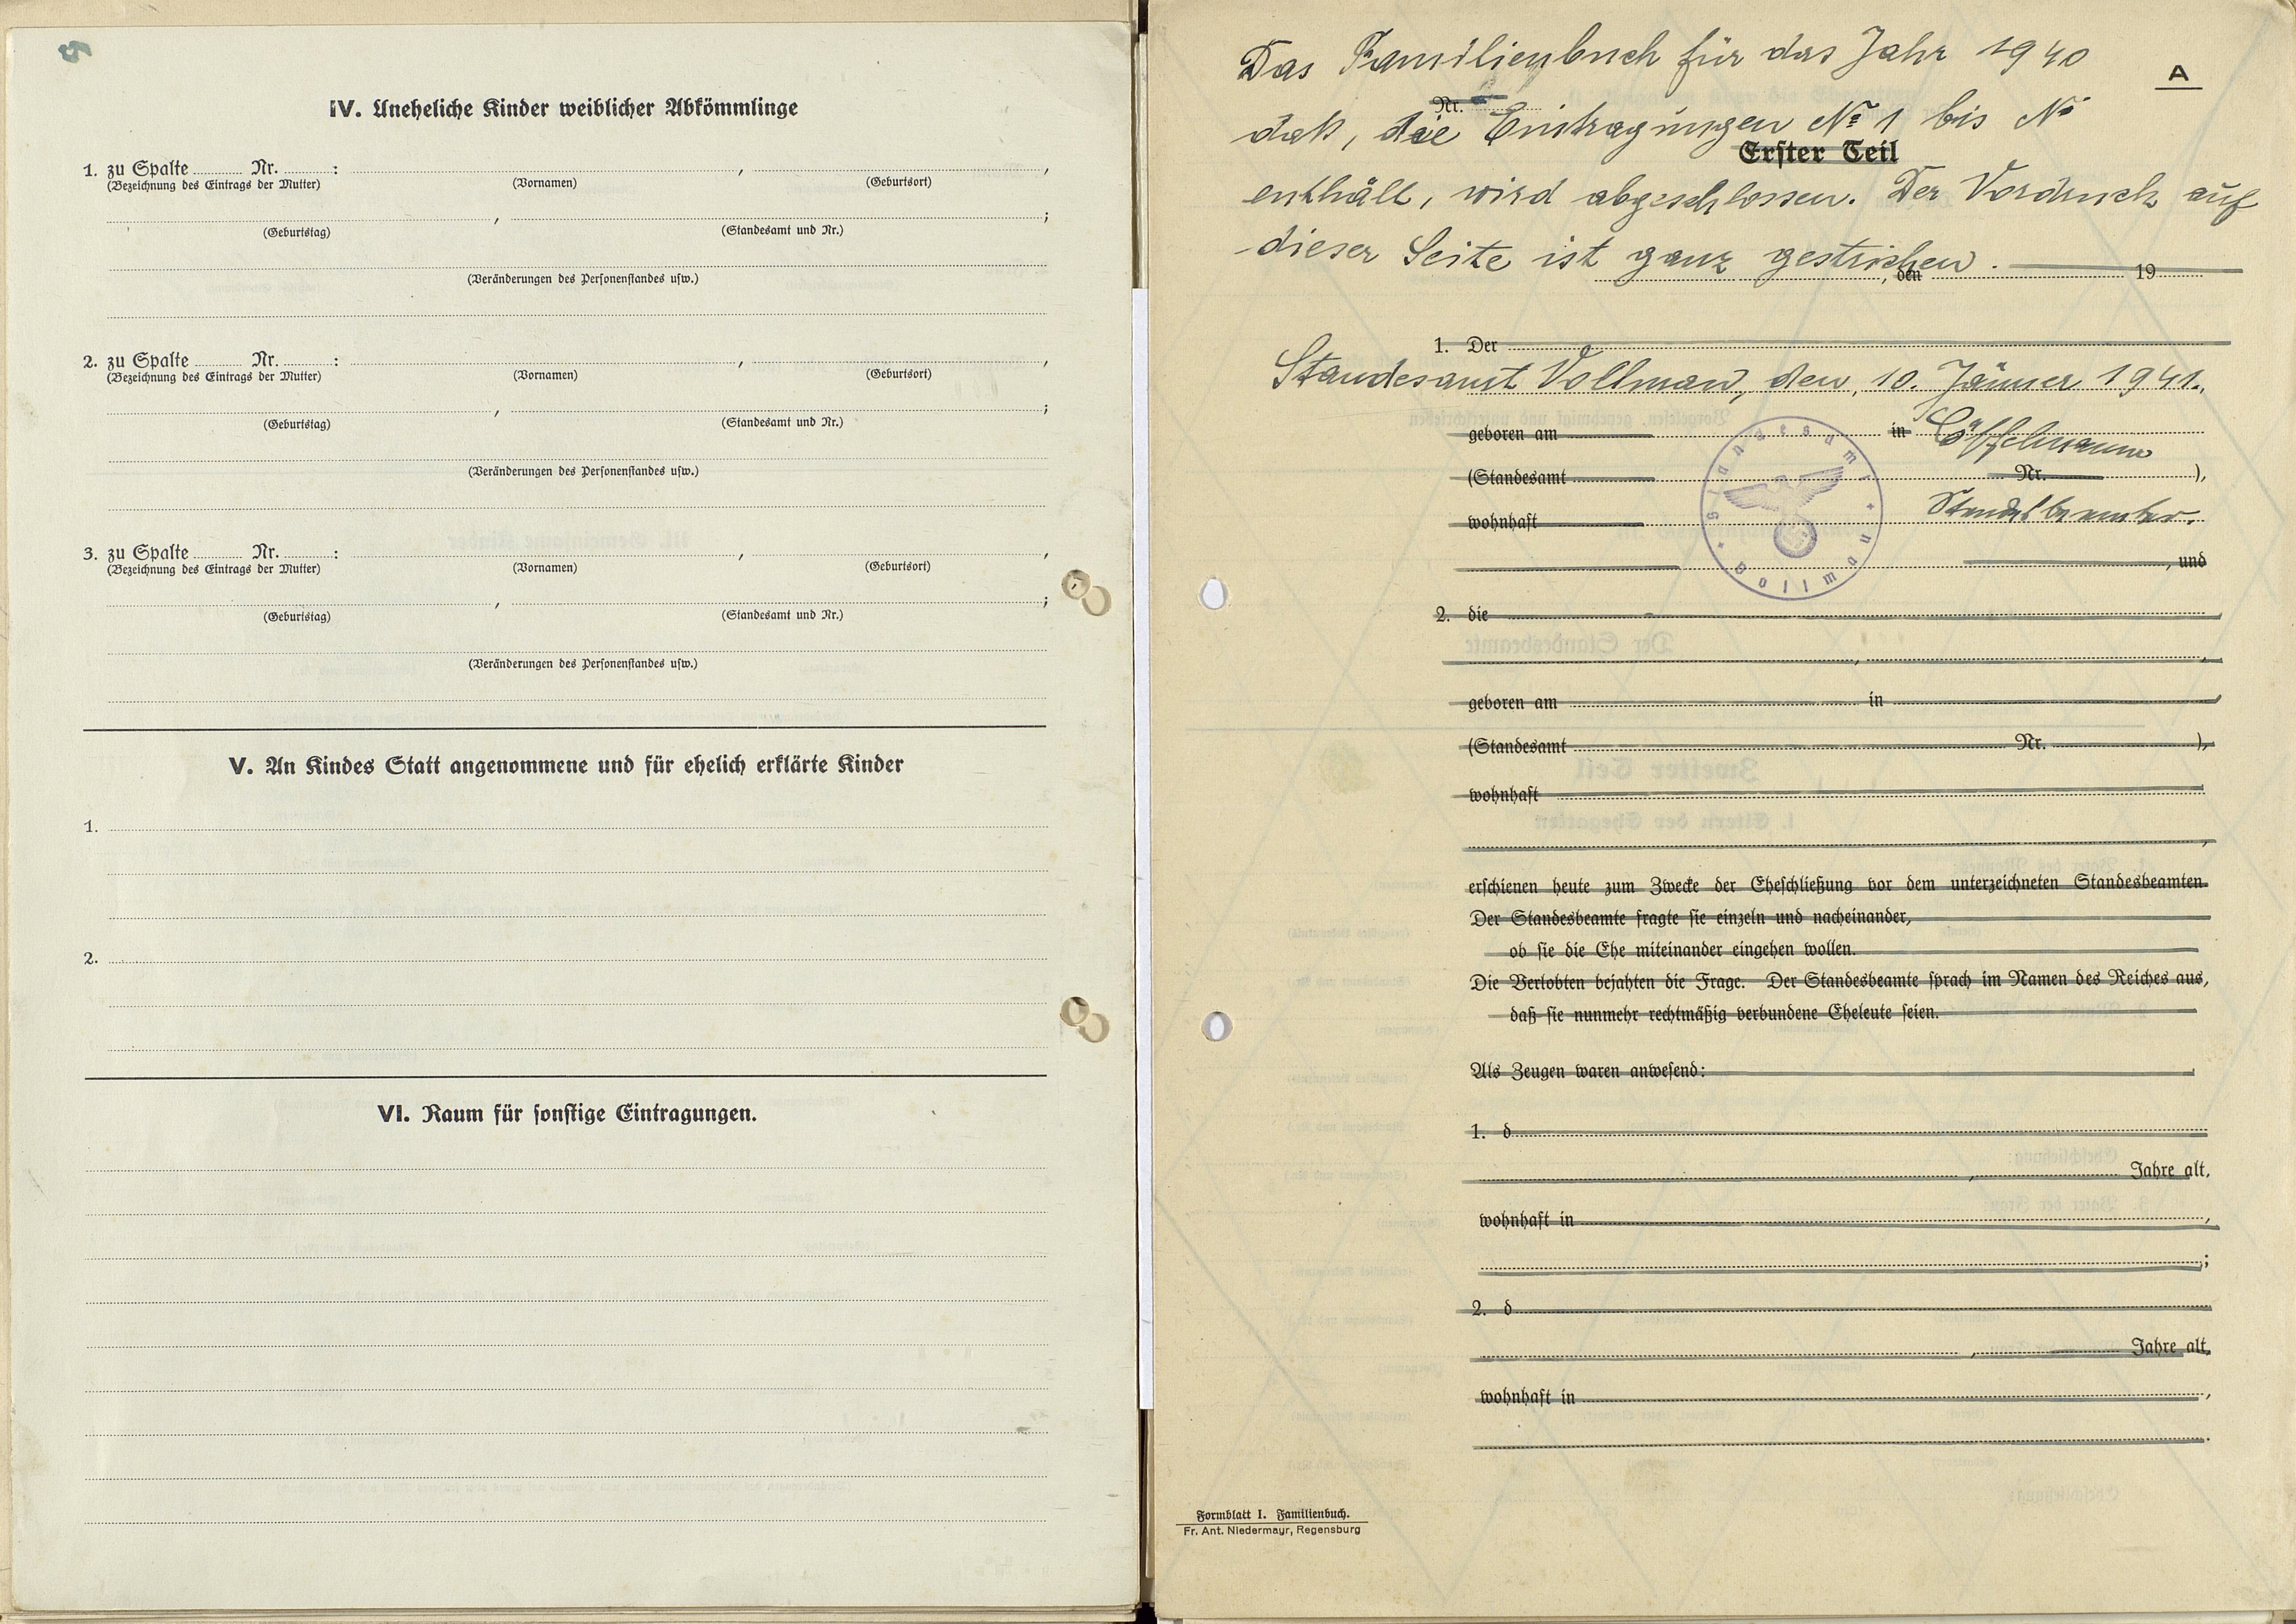 IV. Uneheliche Kinder weiblicher Abkömmlinge
1. zu Spalte ........ Nr. ........ : ........ , ........ ,
(Bezeichnung des Eintrags der Mutter) (Vornamen) (Geburtsort)
........ , ........ ;
(Geburtstag) (Standesamt und Nr.)
(Veränderungen des Personenstandes usw.)
2. zu Spalte ........ Nr. ........ : ........ , ........ ,
(Bezeichnung des Eintrags der Mutter) (Vornamen) (Geburtsort)
........ , ........ ;
(Geburtstag) (Standesamt und Nr.)
(Veränderungen des Personenstandes usw.)
3. zu Spalte ........ Nr. ........ : ........ , ........ ,
(Bezeichnung des Eintrags der Mutter) (Vornamen) (Geburtsort)
........ , ........ ;
(Geburtstag) (Standesamt und Nr.)
(Veränderungen des Personenstandes usw.)
V. An Kindes Statt angenommene und für ehelich erklärte Kinder
1.
2.
VI. Raum für sonstige Eintragungen.
Das Familienbuch für das Jahr 1940
A
Nr.
das, die Eintragungen № 1 bis №
Erster Teil
enthält, wird abgeschlossen. Der Vordruck auf
dieser Seite ist ganz gestrichen.
, den ........ 19
1. Der
Standesamt Vollmau, den 10. Jänner 1941.
geboren am ........ in Löffelmann
(Standesamt ........ Nr. ........ ),
wohnhaft ........ Standesbeamter.
, und
Standesamt Vollmau
2. die
geboren am ........ in
(Standesamt ........ Nr. ........ ),
wohnhaft
erschienen heute zum Zwecke der Eheschließung vor dem unterzeichneten Standesbeamten.
Der Standesbeamte fragte sie einzeln und nacheinander,
ob sie die Ehe miteinander eingehen wollen.
Die Verlobten bejahten die Frage. Der Standesbeamte sprach im Namen des Reiches aus,
daß sie nunmehr rechtmäßig verbundene Eheleute seien.
Als Zeugen waren anwesend:
1. d
, ........ Jahre alt,
wohnhaft in ........ ,
;
2. d
, ........ Jahre alt,
wohnhaft in ........ ,
.
Formblatt I. Familienbuch.
Fr. Ant. Niedermayr, Regensburg